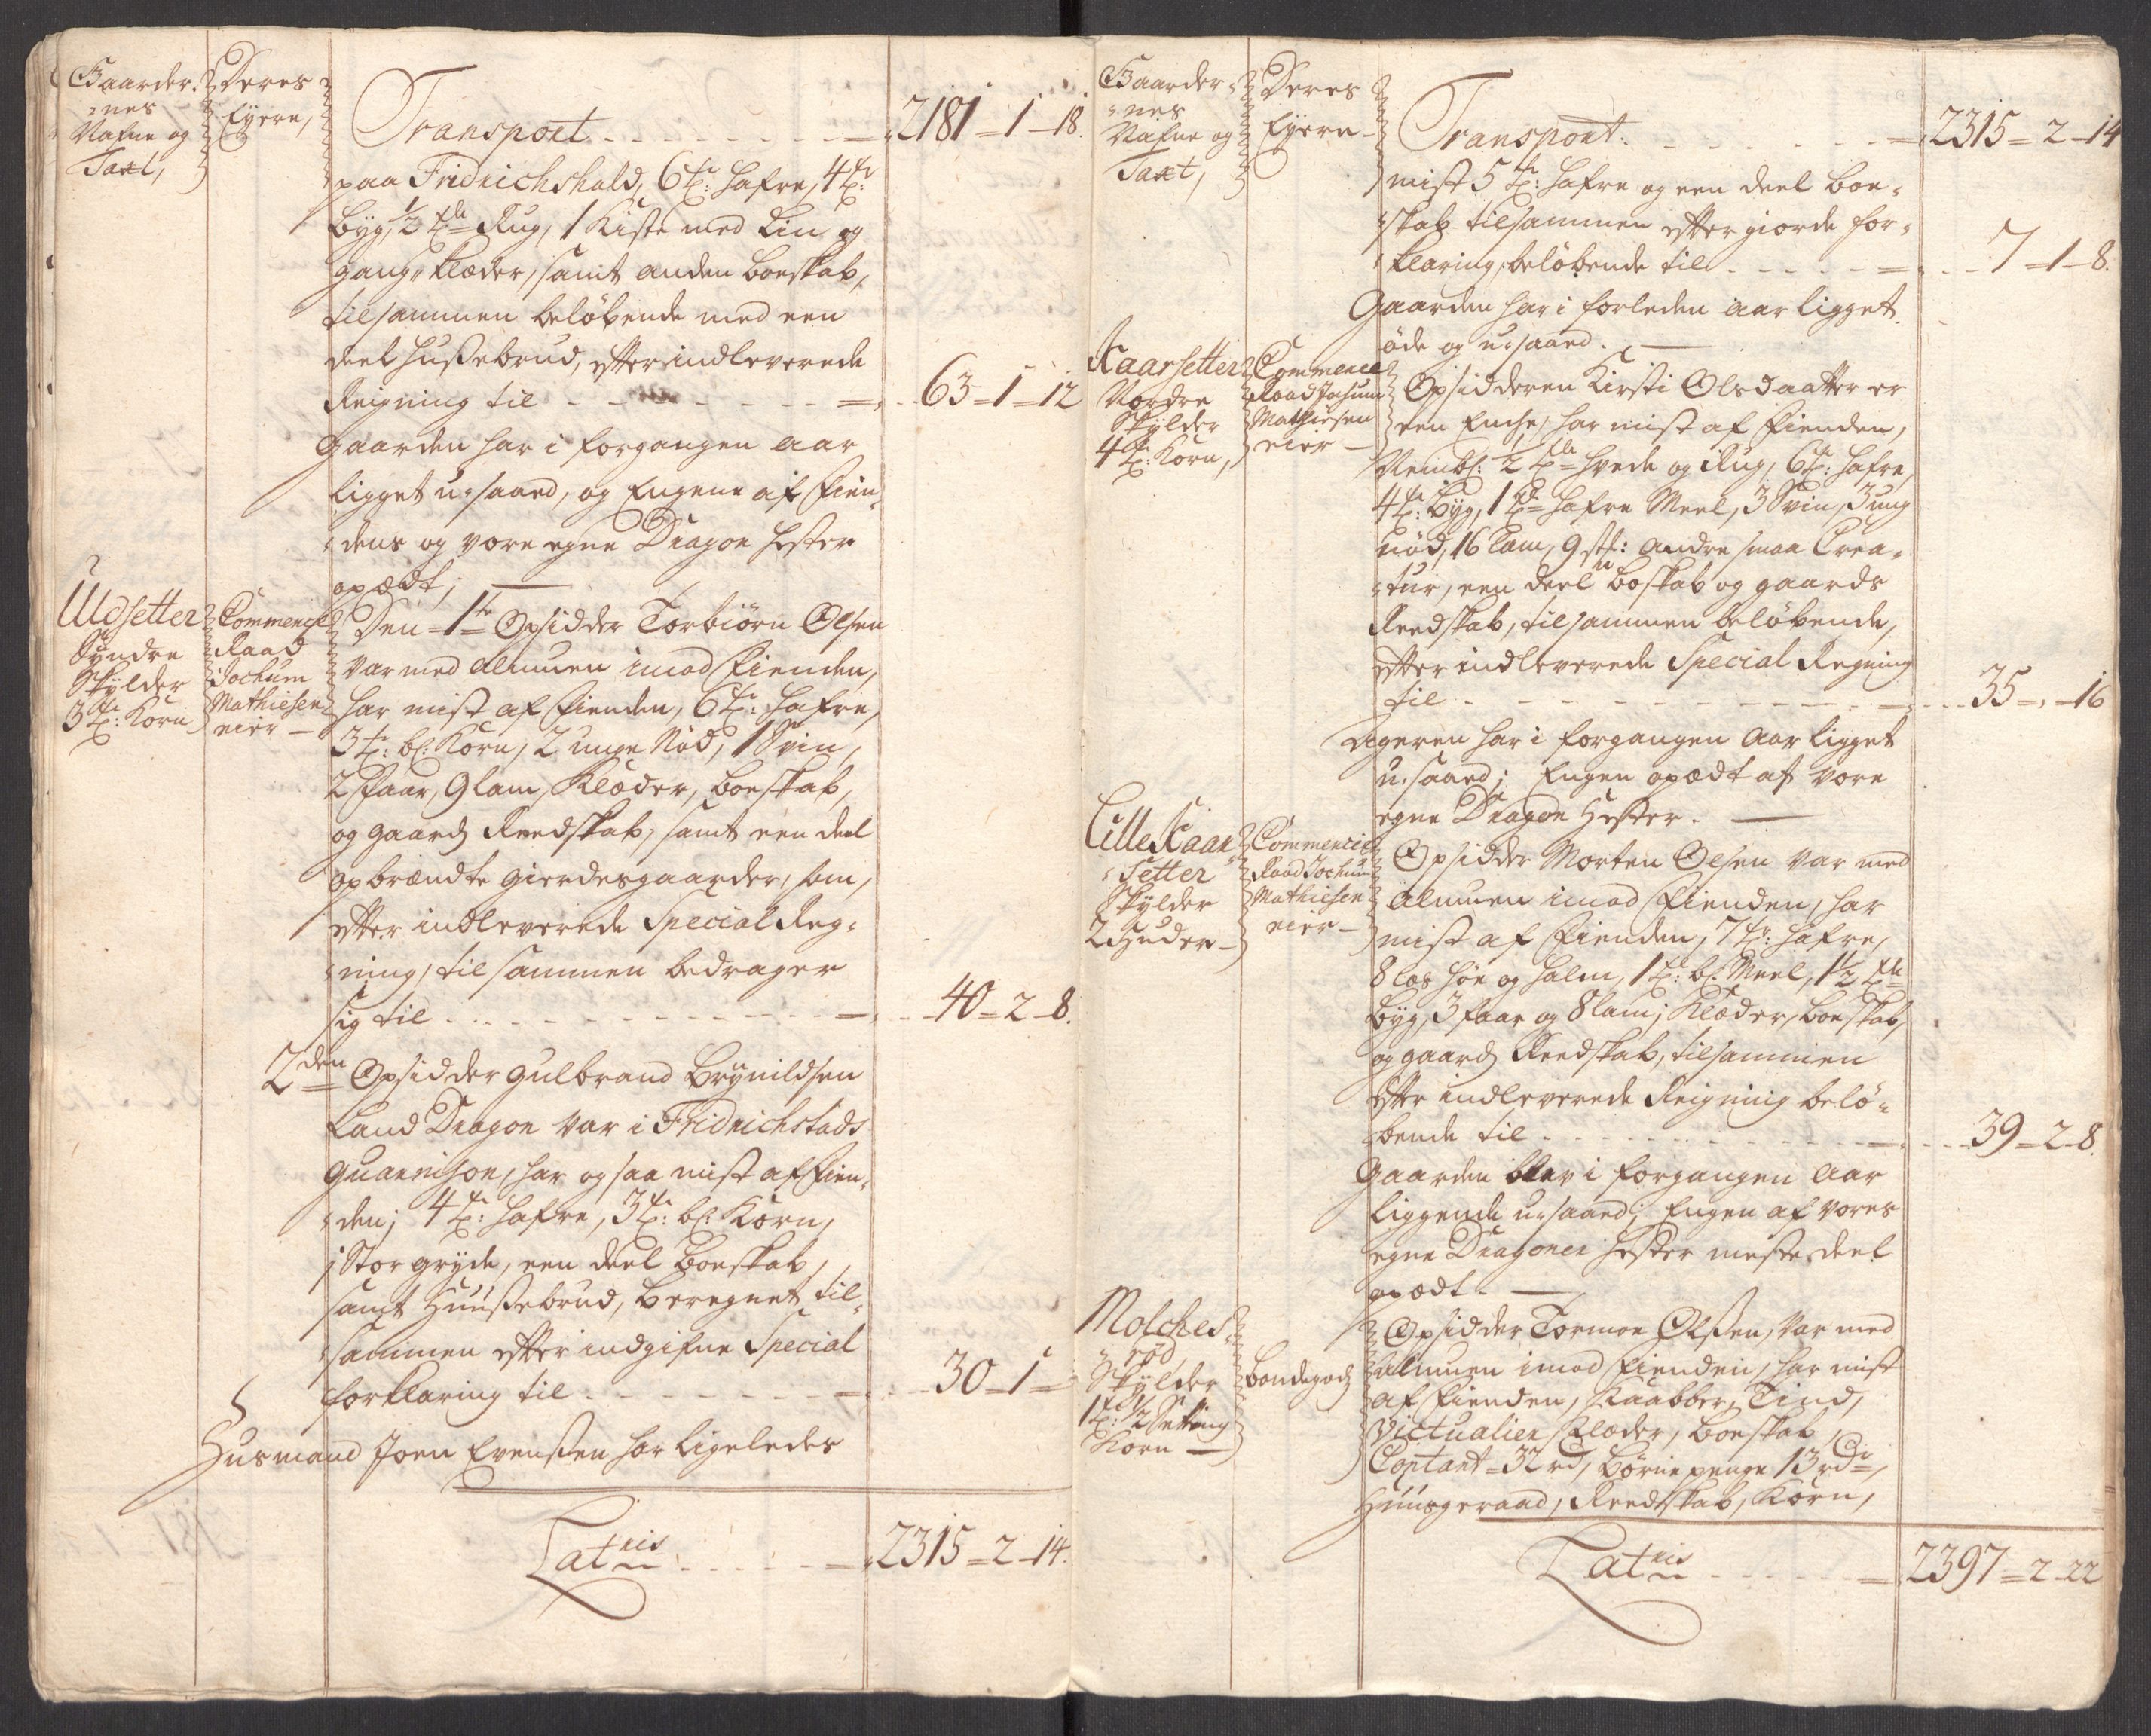 Gaarder-
nes
Nafne og
Taxt,
Deres
Eyere,
Transport 2181=1-18.
paa Fridrichshald, 6 Tr: Hafre, 4 Tr:
Byg, ½ Tde Rug, 1 Kiste med Lin og
gang Klæder, samt anden boeskab,
tilsammen beløbende med een
deel Hussebrud, effter indleverede
Reigning til 63=1=12
Gaarden har i forgangen aar
ligget u-saaed, og Engene af Fien-
dens og vore egne Dragon Hester
opædt;
Uldsetter
Syndre
Skylder
3 Tr: Korn
Commerce
Raad
Jochum
Mathiesen
eier
Den 1te Opsidder Torbiörn Olsen
var med almuen imod Fienden,
har mist af Fienden, 6 Tr: Hafre,
3 Tr: bl: Korn, 2 unge Nød, 1 Svin,
2 Faar, 9 lam, Klæder, boeskab,
og gaards Reedskab, samt een deel
opbrændte gierdesgaarder, som,
effter indleverede Special Reg-
ning, tilsammen bedrager
sig til 40=2-8.
2den Opsidder Gulbrand Brynildsen
Land Dragon var i Fridrichstads
Guarnison, har og saa mist af Fien-
den; 4 Tr: Hafre, 3 Tr: bl: Korn,
1 Stor gryde, een deel boeskab,
samt Huussebrud, beregnet til-
sammen effter indgifne Special
forklaring til 30-1=
Husmand Joen Evensen har ligeledes
Lateris 2315=2-14.
Gaarder-
nes
Nafne og
Taxt,
Deres
Eyere
Transport 2315=2-14
mist 5 Tr: Hafre og een deel boe-
skab tilsammen effter giorde for-
klaring, beløbende til 7=1-8.
Gaarden har i forleden aar ligget
øde og u-saaed.
Kaarsetter
Nordre
Skylder
4 Tr: Korn,
Commerce
Raad Jochum
Mathiesen
eier
Opsidderen Kirsti Olsdaatter er
een Enche, har mist af Fienden,
Nembl: ½ Tde Hvede og Rug, 6 Tr: Hafre,
4 Tr: Byg, 1 Td Hafre Meel, 3 Svin, 3 ung
nød, 16 Lam, 9 st: andre smaa Crea-
tur, een deel boskab og gaards
Reedskab, tilsammen beløbende,
effter indleverede Special Regning
til 35=,-16
Ageren har i forgangen Aar ligget
u-saaed; Engen opædt af vore
egne Dragon Hester.
Lille Kaar-
setter
Skylder
2 Huder
Commercie
Raad Jochum
Mathiesen
eier
Opsidder Morten Olsen var med
Almuen imod Fienden, har
mist af Fienden, 7 Tr: Hafre,
8 læs Høe og Halm, 1 Td: bl: Meel, 1½ Tde
Byg, 3 faar og 8 lam; Klæder, boeskab,
og gaards Reedskab, tilsammen
effter indleverede Reigning belø-
bende til 39=2-8.
Gaarden blev i forgangen Aar
liggende u-saaed; Engen af vores
egne Dragoner Hester meste deel
opædt.
Molches-
rød
Skylder
1 Td: ½ Setting
Korn
Bondegods
Opsidder Tormoe Olssen, var med
almuen imod Fienden, har mist
af Fienden, Kaabber, Tind,
Victualier, Klæder, boeskab,
Contant 32 rd, Børnepenge 13 rdr,
Huusgeraad, Reedskab, Korn,
Lateris 2397=2-22